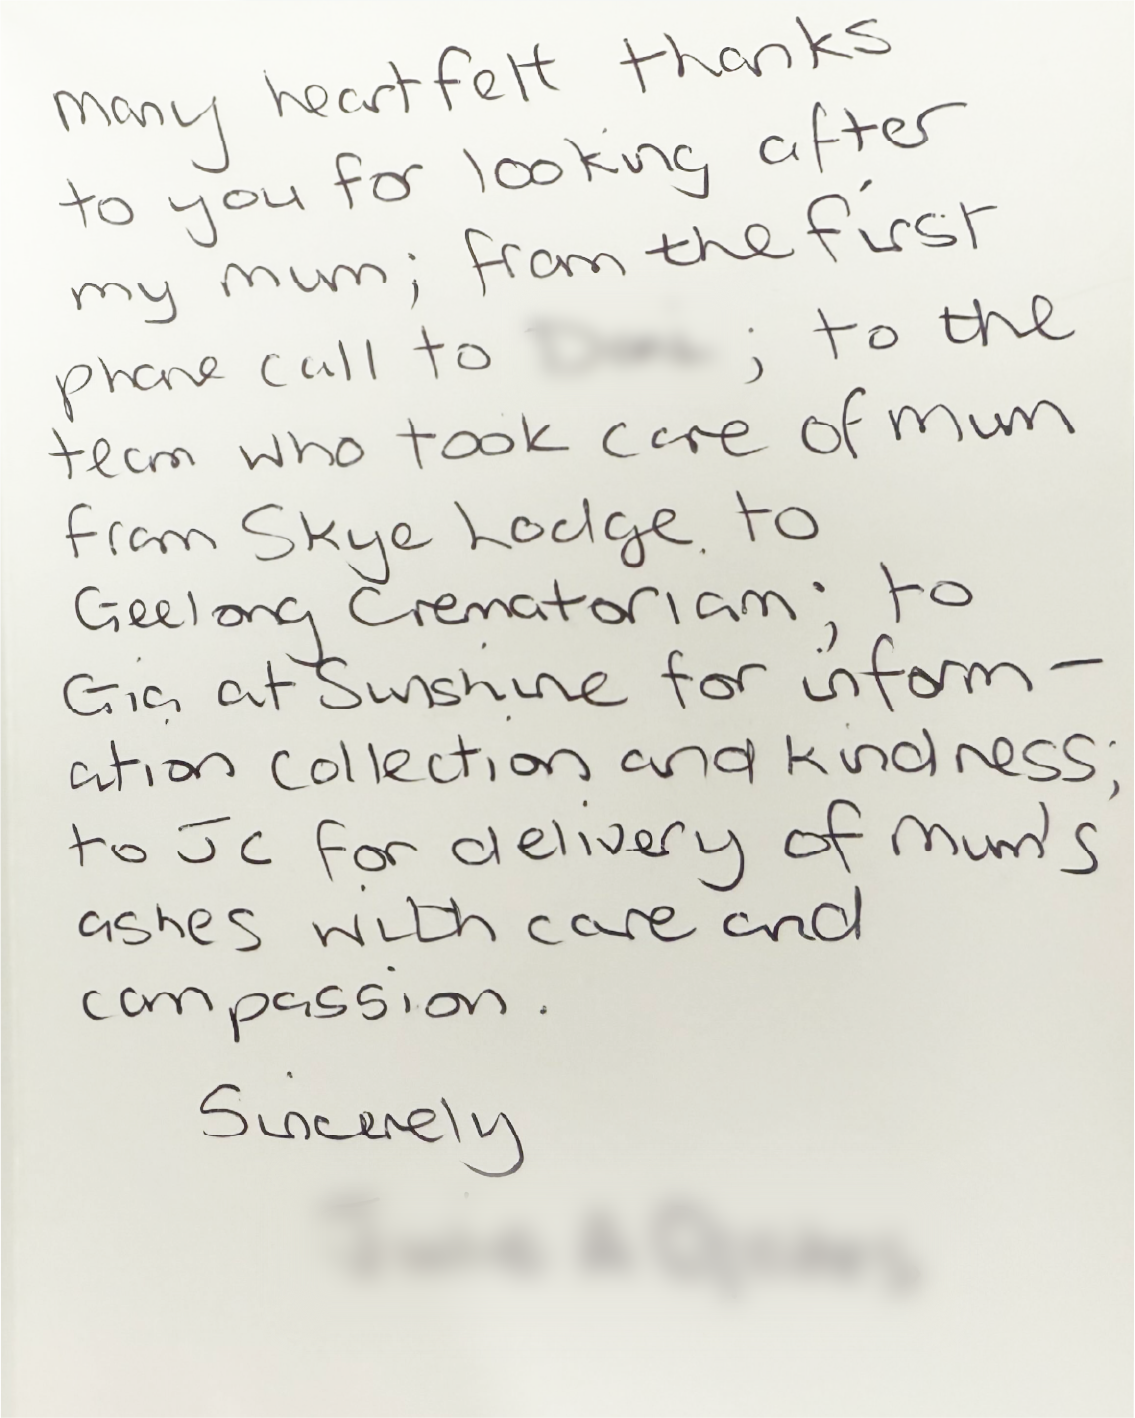 many heartfelt thanks
to you for looking after
my mum; from the first
phone call to ; to the
team who took care of mum
from Skye Lodge. to
Geelong Crematoriam; to
Gia at Sunshine for inform-
ation collection and kindness;
to JC for delivery of mum's
ashes with care and
compassion.
Sincerely